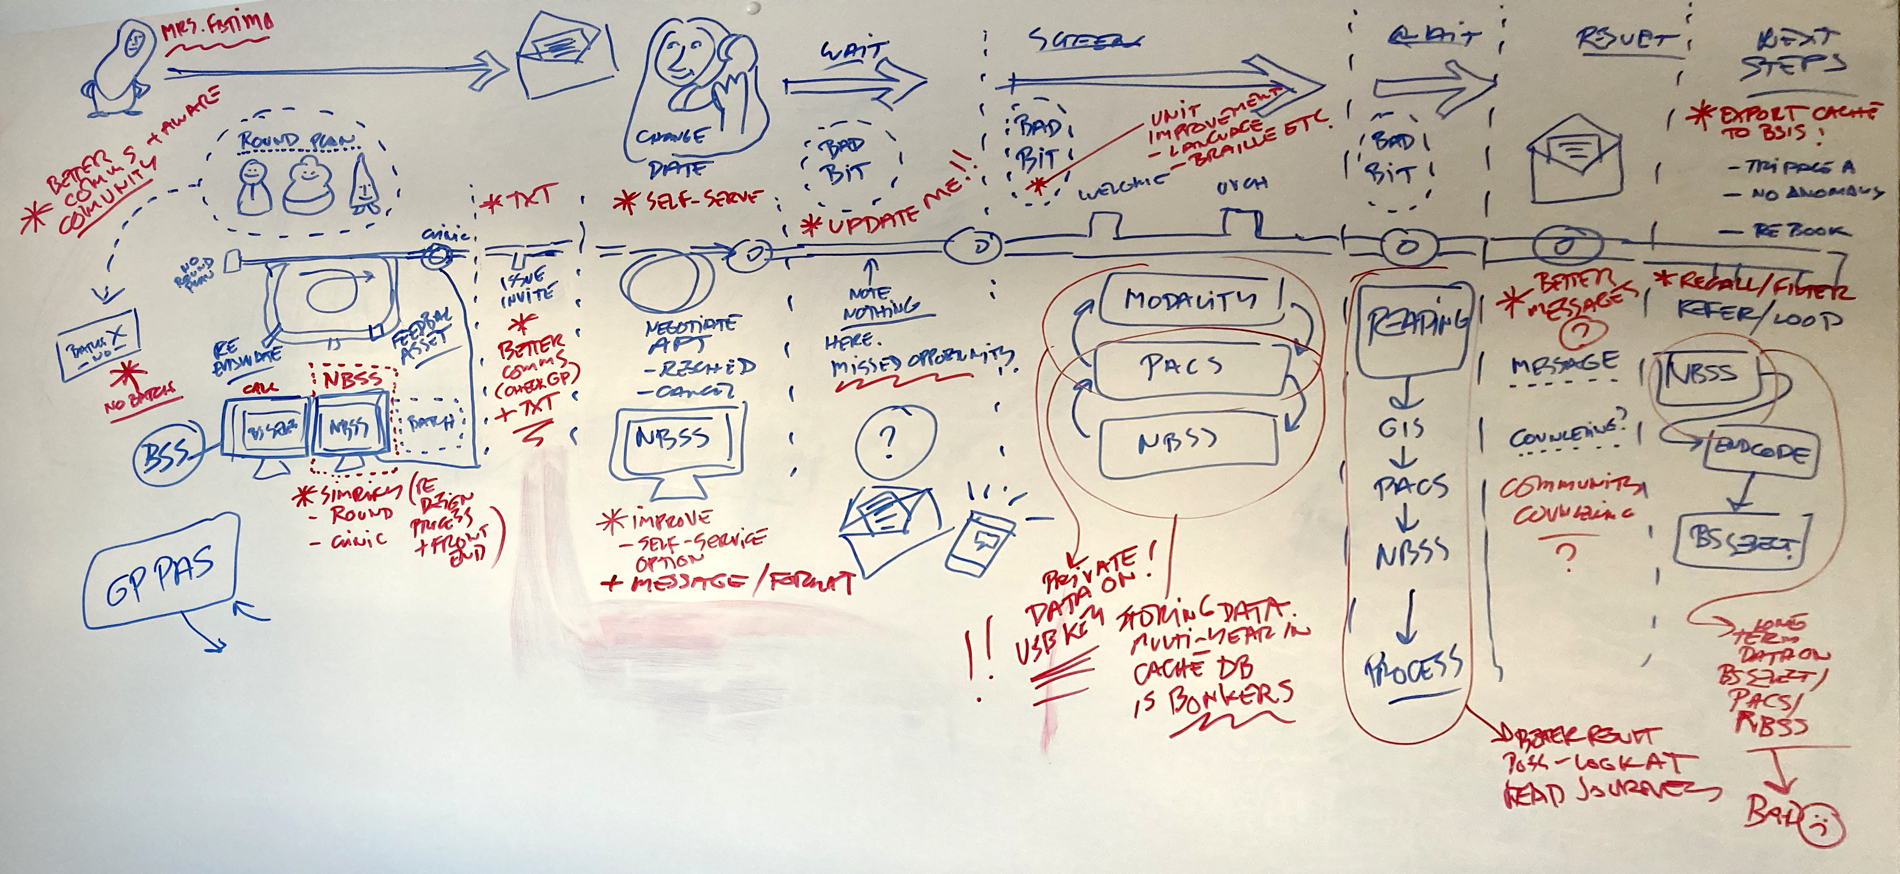 MRS. FATIMA
* BETTER
COMMS + AWARE
COMMUNITY
ROUND PLAN
NO
ROUND
PLAN
CLINIC
BATCH X
NO
*
NO BATCH
RE
FEEDBACK
ASSET
IS
CALL
NBSS
BSS
BS SELECT
NBSS
BATCH
* SIMPLIFY (RE
DESIGN
PROCESS
+ FRONT
END)
- ROUND
- CLINIC
GP PAS
* TXT
ISSUE
INVITE
*
BETTER
COMMS
(CHECK GP)
+ TXT
CHANGE
DATE
* SELF-SERVE
NEGOTIATE
APT
- RESCHED
- CANCEL
NBSS
* IMPROVE
- SELF-SERVICE
OPTION
+ MESSAGE / FORMAT
WAIT
BAD
BIT
* UPDATE ME!!
NOTE
NOTHING
HERE.
MISSED OPPORTUNITY.
?
SCREEN
BAD
BIT
*
UNIT
IMPROVEMENT
- LANGUAGE
- BRAILLE ETC.
WELCOME
OUCH
MODALITY
PACS
NBSS
PRIVATE
DATA ON!
USB KEY
!!
STORING DATA.
MULTI-YEAR IN
CACHE DB
IS BONKERS
WAIT
BAD
BIT
READING
GIS
PACS
NBSS
PROCESS
BETTER RESULT
POSS - LOOK AT
READ JOURNEYS
RESULT
* BETTER
MESSAGES
?
MESSAGE
COUNCELING?
COMMUNITY
COUNCELING
?
NEXT
STEPS
* EXPORT CACHE
TO BSIS!
- NO ANOMALYS
- REBOOK
* RECALL/FILTER
REFER/LOOP
NBSS
ENDCODE
BS SELECT
LONG
TERM
DATA ON
BS SELECT/
PACS/
NBSS
BAD